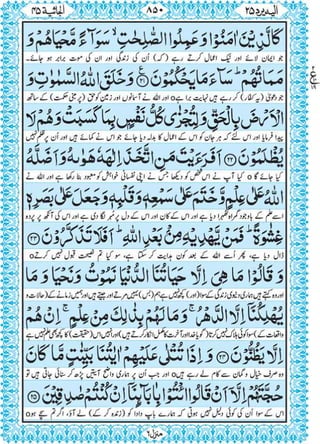 الجاثیۃ ۴۵ ۸۵۰ الیہ یرد ۲۵
كَالَّذِيْنَ اٰمَنُوْا وَعَمِلُوا الصّٰلِحٰتِ ۙ سَوَآءً مَّحْيَاهُمْ وَ
جو ایمان لائے اور نیک اعمال کرتے رہے (کہ) اُن کی زندگی اور ان کی موت برابر ہو جائے۔
مَمَاتُهُمْ ؕ سَآءَ مَا يَحْكُمُوْنَ ﴿۲۱﴾ وَخَلَقَ اللّٰهُ السَّمٰوٰتِ وَ
جو دعویٰ (یہ کفار) کر رہے ہیں نہایت برا ہے اور اللہ نے آسمانوں اور زمین کو حق (پر مبنی حکمت) کے ساتھ
الْاَرْضَ بِالْحَقِّ وَلِتُجْزٰى كُلُّ نَفْسٍۭ بِمَا كَسَبَتْ وَهُمْ لَا
پیدا فرمایا اور اس لئے کہ ہر جان کو اس کے اعمال کا بدلہ دیا جائے جو اس نے کمائے ہیں اور اُن پر ظلم نہیں
يُظْلَمُوْنَ ﴿۲۲﴾ اَفَرَءَيْتَ مَنِ اتَّخَذَ اِلٰهَهٗ هَوٰىهُ وَاَضَلَّهُ
کیا جائے گا کیا آپ نے اس شخص کو دیکھا جس نے اپنی نفسانی خواہش کو معبود بنا رکھا ہے اور اللہ نے
اللّٰهُ عَلٰى عِلْمٍ وَّخَتَمَ عَلٰى سَمْعِهٖ وَقَلْبِهٖ وَجَعَلَ عَلٰى بَصَرِهٖ
اسے علم کے باوجود گمراہ ٹھہرا دیا ہے اور اس کے کان اور اس کے دل پر مہر لگا دی ہے اور اس کی آنکھ پر پردہ
غِشٰوَةً ؕ فَمَنْ يَّهْدِيْهِ مِنْۢ بَعْدِ اللّٰهِ ؕ اَفَلَا تَذَكَّرُوْنَ ﴿۲۳﴾
ڈال دیا ہے، پھر اُسے اللہ کے بعد کون ہدایت کر سکتا ہے، سو کیا تم نصیحت قبول نہیں کرتے
وَقَالُوْا مَا هِيَ اِلَّا حَيَاتُنَا الدُّنْيَا نَمُوْتُ وَنَحْيَا وَمَا
اور وہ کہتے ہیں ہماری دنیوی زندگی کے سوا (اور) کچھ نہیں ہے ہم (بس) یہیں مرتے اور جیتے ہیں اور ہمیں زمانے کے (حالات و
يُهْلِكُنَآ اِلَّا الدَّهْرُ ۚ وَمَا لَهُمْ بِذٰلِكَ مِنْ عِلْمٍ ۚ اِنْ هُمْ
واقعات کے) سوا کوئی ہلاک نہیں کرتا (گویا خدا اور آخرت کا مکمل انکار کرتے ہیں) اور انہیں اس (حقیقت) کا کچھ بھی علم نہیں ہے
اِلَّا يَظُنُّوْنَ ﴿۲۴﴾ وَاِذَا تُتْلٰى عَلَيْهِمْ اٰيٰتُنَا بَيِّنٰتٍ مَّا كَانَ
وہ صرف خیال و گمان سے کام لے رہے ہیں اور جب اُن پر ہماری واضح آیتیں پڑھ کر سنائی جاتی ہیں تو
حُجَّتَهُمْ اِلَّآ اَنْ قَالُوا ائْتُوْا بِاٰبَآئِنَآ اِنْ كُنْتُمْ صٰدِقِيْنَ ﴿۲۵﴾
اس کے سوا اُن کی کوئی دلیل نہیں ہوتی کہ ہمارے باپ دادا کو (زندہ کر کے) لے آؤ، اگر تم سچے ہو
منزل ۶